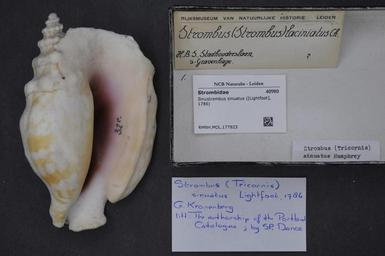 RIJKSMUSEUM VAN NATUURLIJKE HISTORIE LEIDEN
Strombus (Strombus) laciniatus Ch.
H.B.S. Stadhouderslaan,
's Gravenhage.
?
1.
NCB Naturalis - Leiden
Strombidae 40980
Sinustrombus sinuatus ([Lightfoot],
1786)
RMNH.MOL.177923
Strombus (Tricornis)
sinuatus Humphrey
Strombus (Tricornis)
sinuatus Lightfoot, 1786
G. Kronenberg
litt. The authorship of the Portland
Catalogue, by S.P. Dance